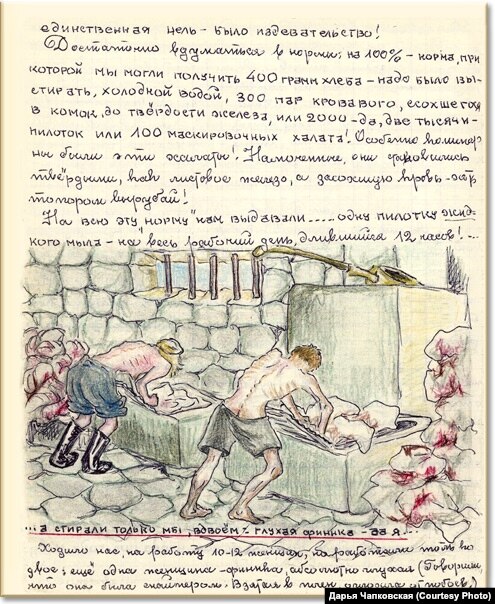 единственная цель – было издевательство!
Достаточно вдуматься в нормы: на 100% – норма, при
которой мы могли получить 400 грамм хлеба – надо было вы-
стирать, холодной водой, 300 пар кровавого, ссохшегося
в комок, до твёрдости железа, или 2000 – да, две тысячи –
пилоток или 100 маскировочных халата! Особенно
были эти халаты! Намоченные, они становились
твёрдыми, как листовое железо, а засохшую кровь – хоть
топором вырубай!
На всю эту "норму" нам выдавали ..... одну пилотку жид-
кого мыла – на весь рабочий день, длившийся 12 часов! ...
...а стирали только мы, вдвоём: глухая финка – да я...
Ходило нас, на работу 10-12 женщин, но работали только
двое; ещё одна женщина – финка, абсолютно глухая (говорили,
что она была снайпером. Взята в плен, от побоев.)
Дарья Чапковская (Courtesy Photo)